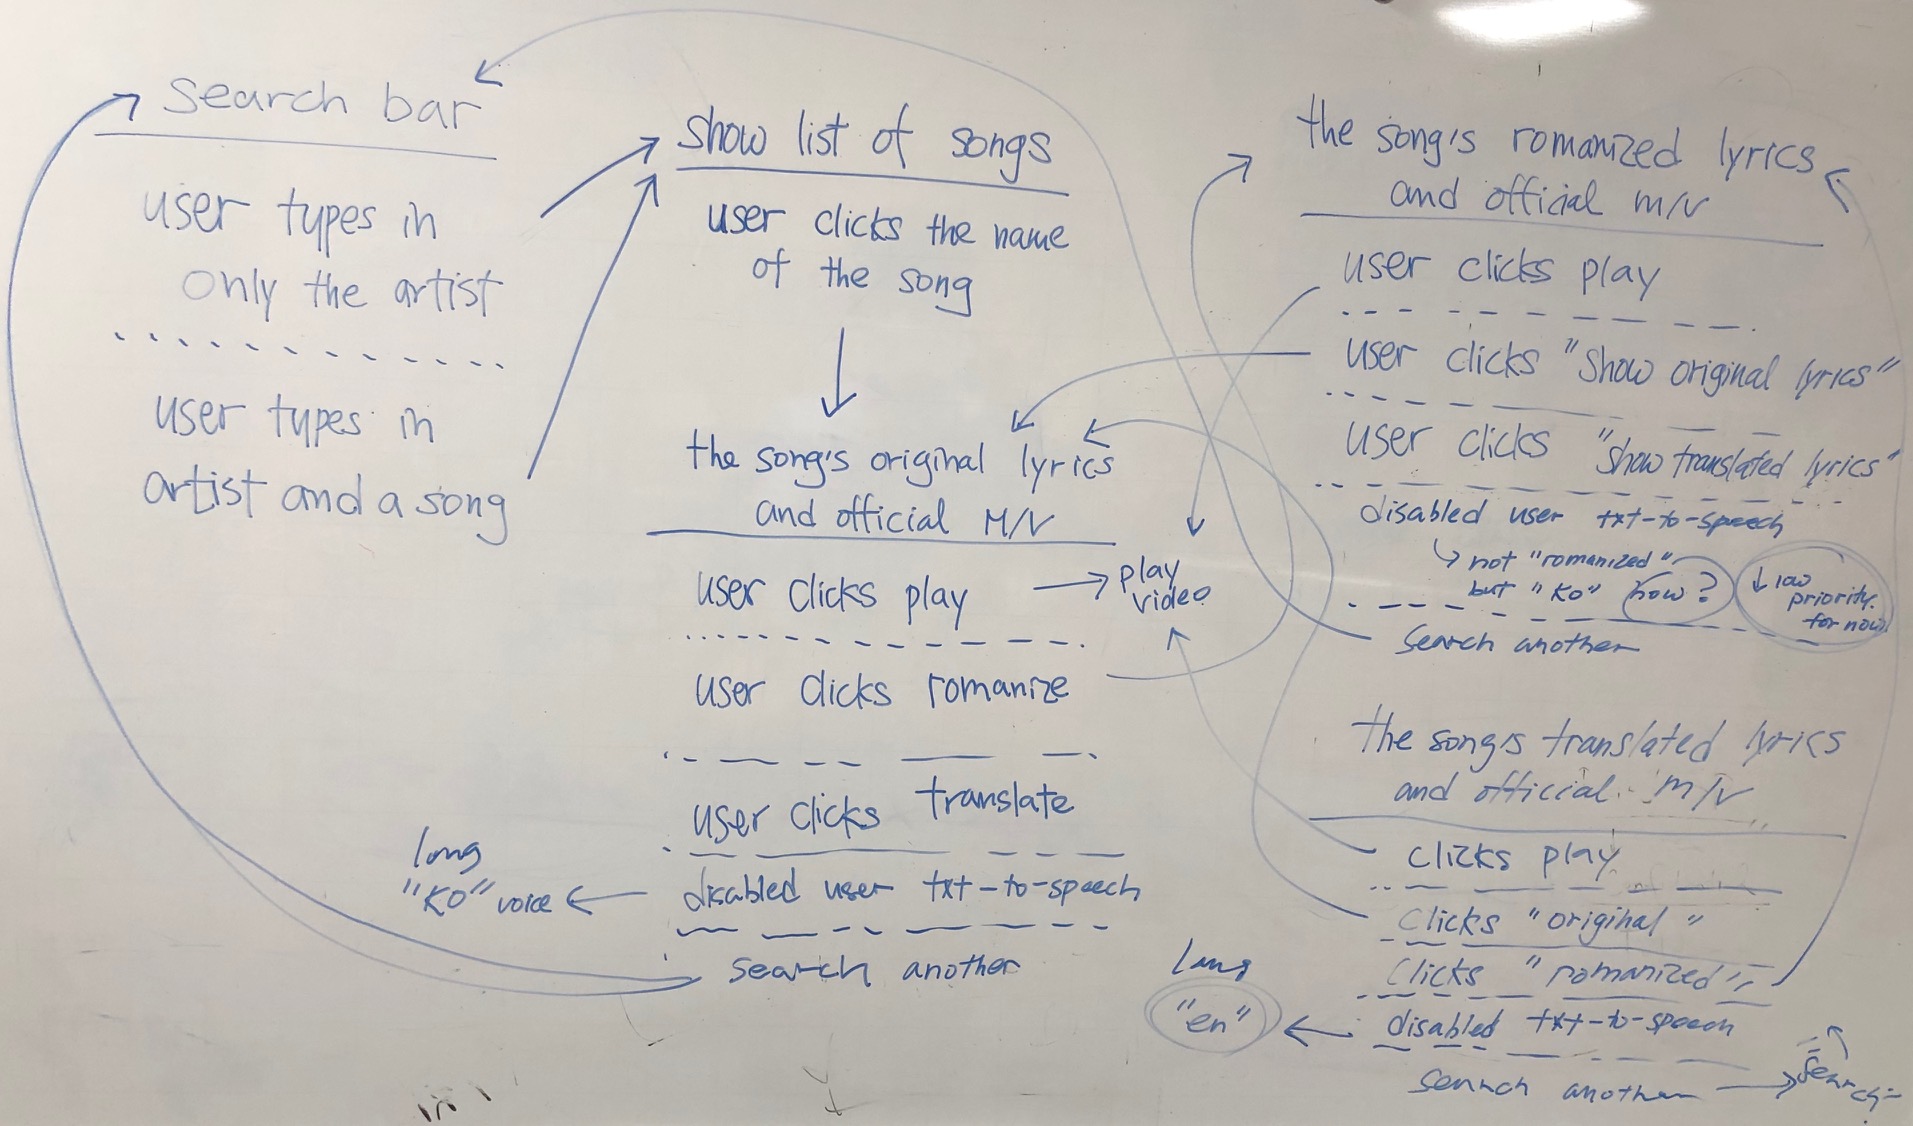 search bar
user types in
only the artist
user types in
artist and a song
show list of songs
user clicks the name
of the song
the song's original lyrics
and official M/V
user clicks play
play
video
user clicks romanize
user clicks translate
disabled user txt-to-speech
lang
"KO" voice
search another
the song's romanized lyrics
and official m/v
user clicks play
user clicks "Show original lyrics"
user clicks "Show translated lyrics"
disabled user txt-to-speech
not "romanized"
but "KO" how?
low
priority
for now
search another
the song's translated lyrics
and official m/v
clicks play
clicks "original"
clicks "romanized"
disabled txt-to-speech
lang
"en"
search another